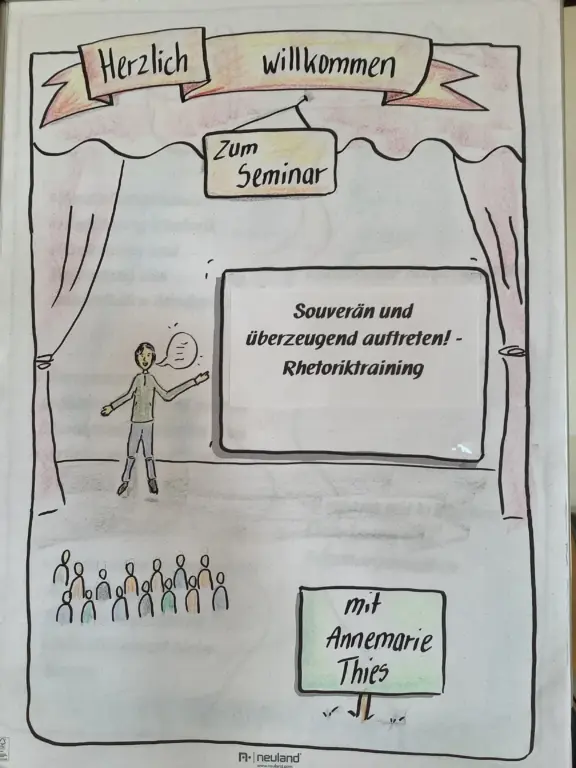 Herzlich willkommen
Zum
Seminar
Souverän und
überzeugend auftreten! -
Rhetoriktraining
mit
Annemarie
Thies
neuland